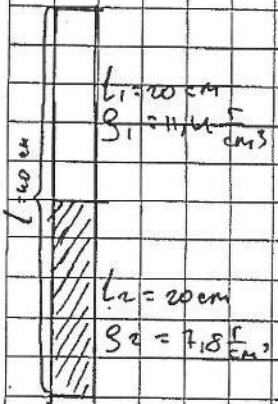 l = 40 см
l₁ = 20 см
ρ₁ = 11,4 г/см³
l₂ = 20 см
ρ₂ = 7,8 г/см³